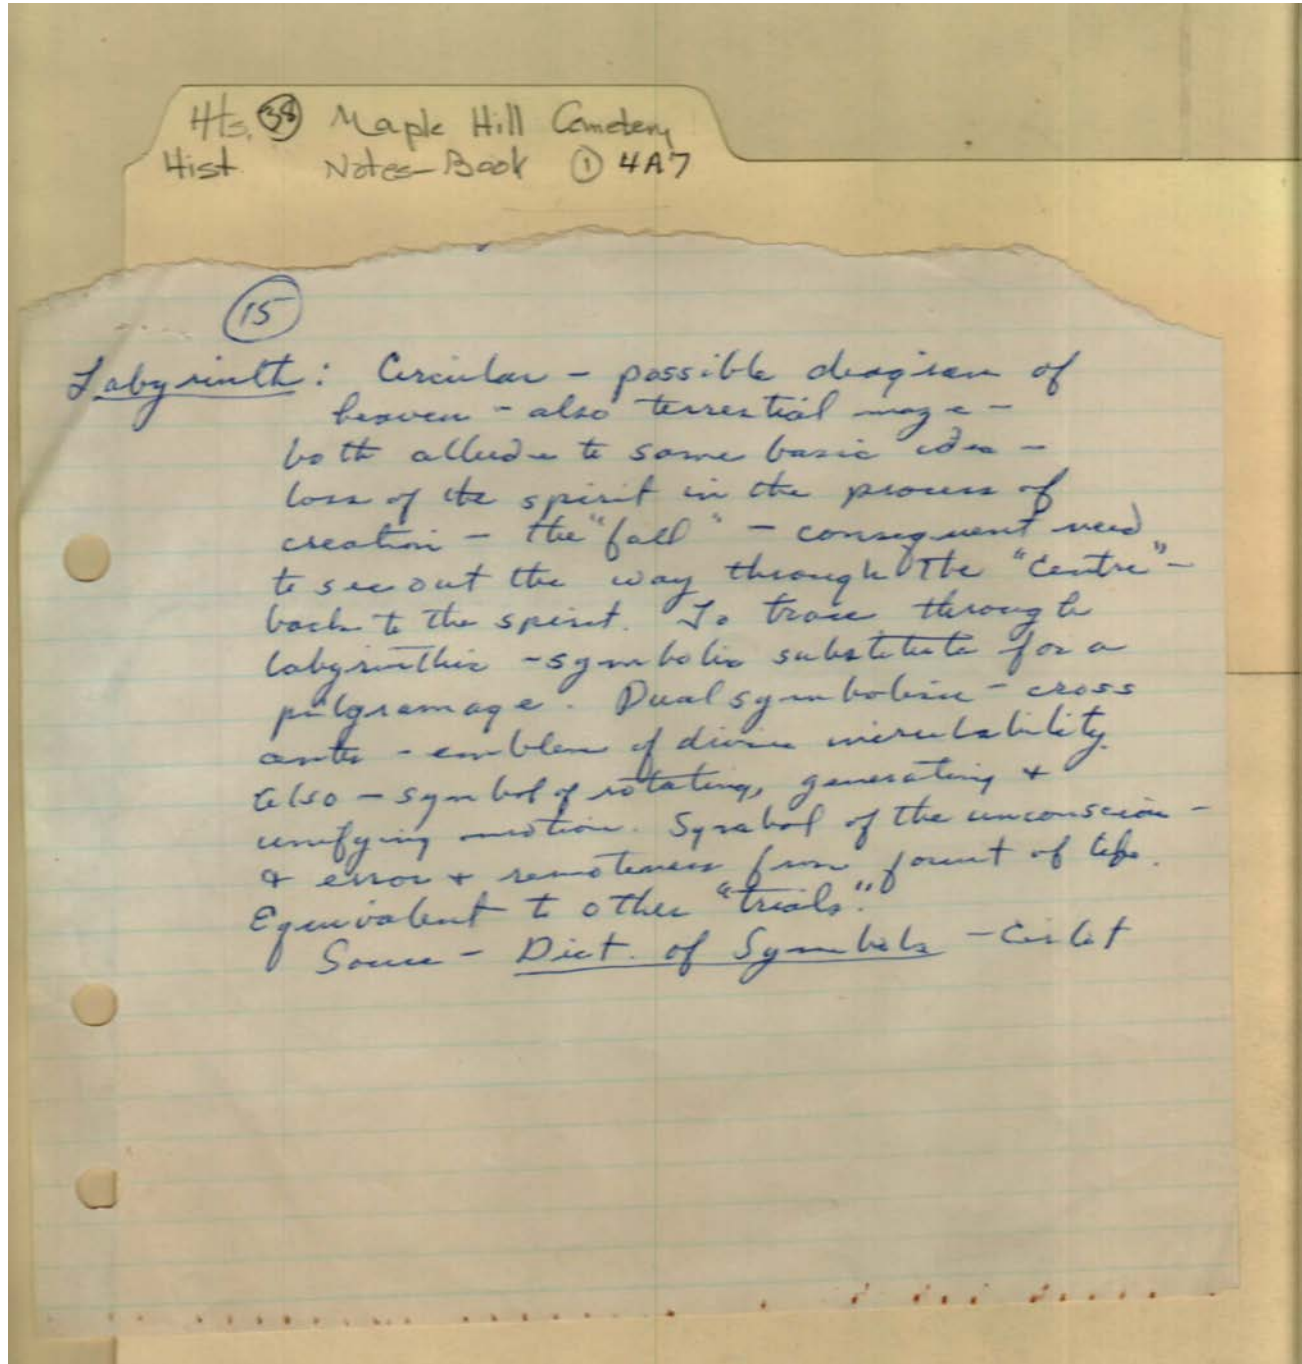 Hts. 38 Maple Hill Cemetery
Hist Notes-Book 1 4A7
15
Labyrinth: Circular - possible diagram of
heaven - also terrestial maze -
both allude to same basic idea -
loss of the spirit in the process of
creation - the "fall" - consequent need
to see out the way through the "Centre" -
back to the spirit. To trace through
labyrinthis - symbolic substitute for a
pilgramage. Dual symbolism - cross
- emblem of divine inscrutability.
also - symbol of rotating, generating +
unifying motion. Symbol of the unconscious -
& error + remoteness from fount of life.
Equivalent to other "trials."
Source - Dict. of Symbols - Cirlot